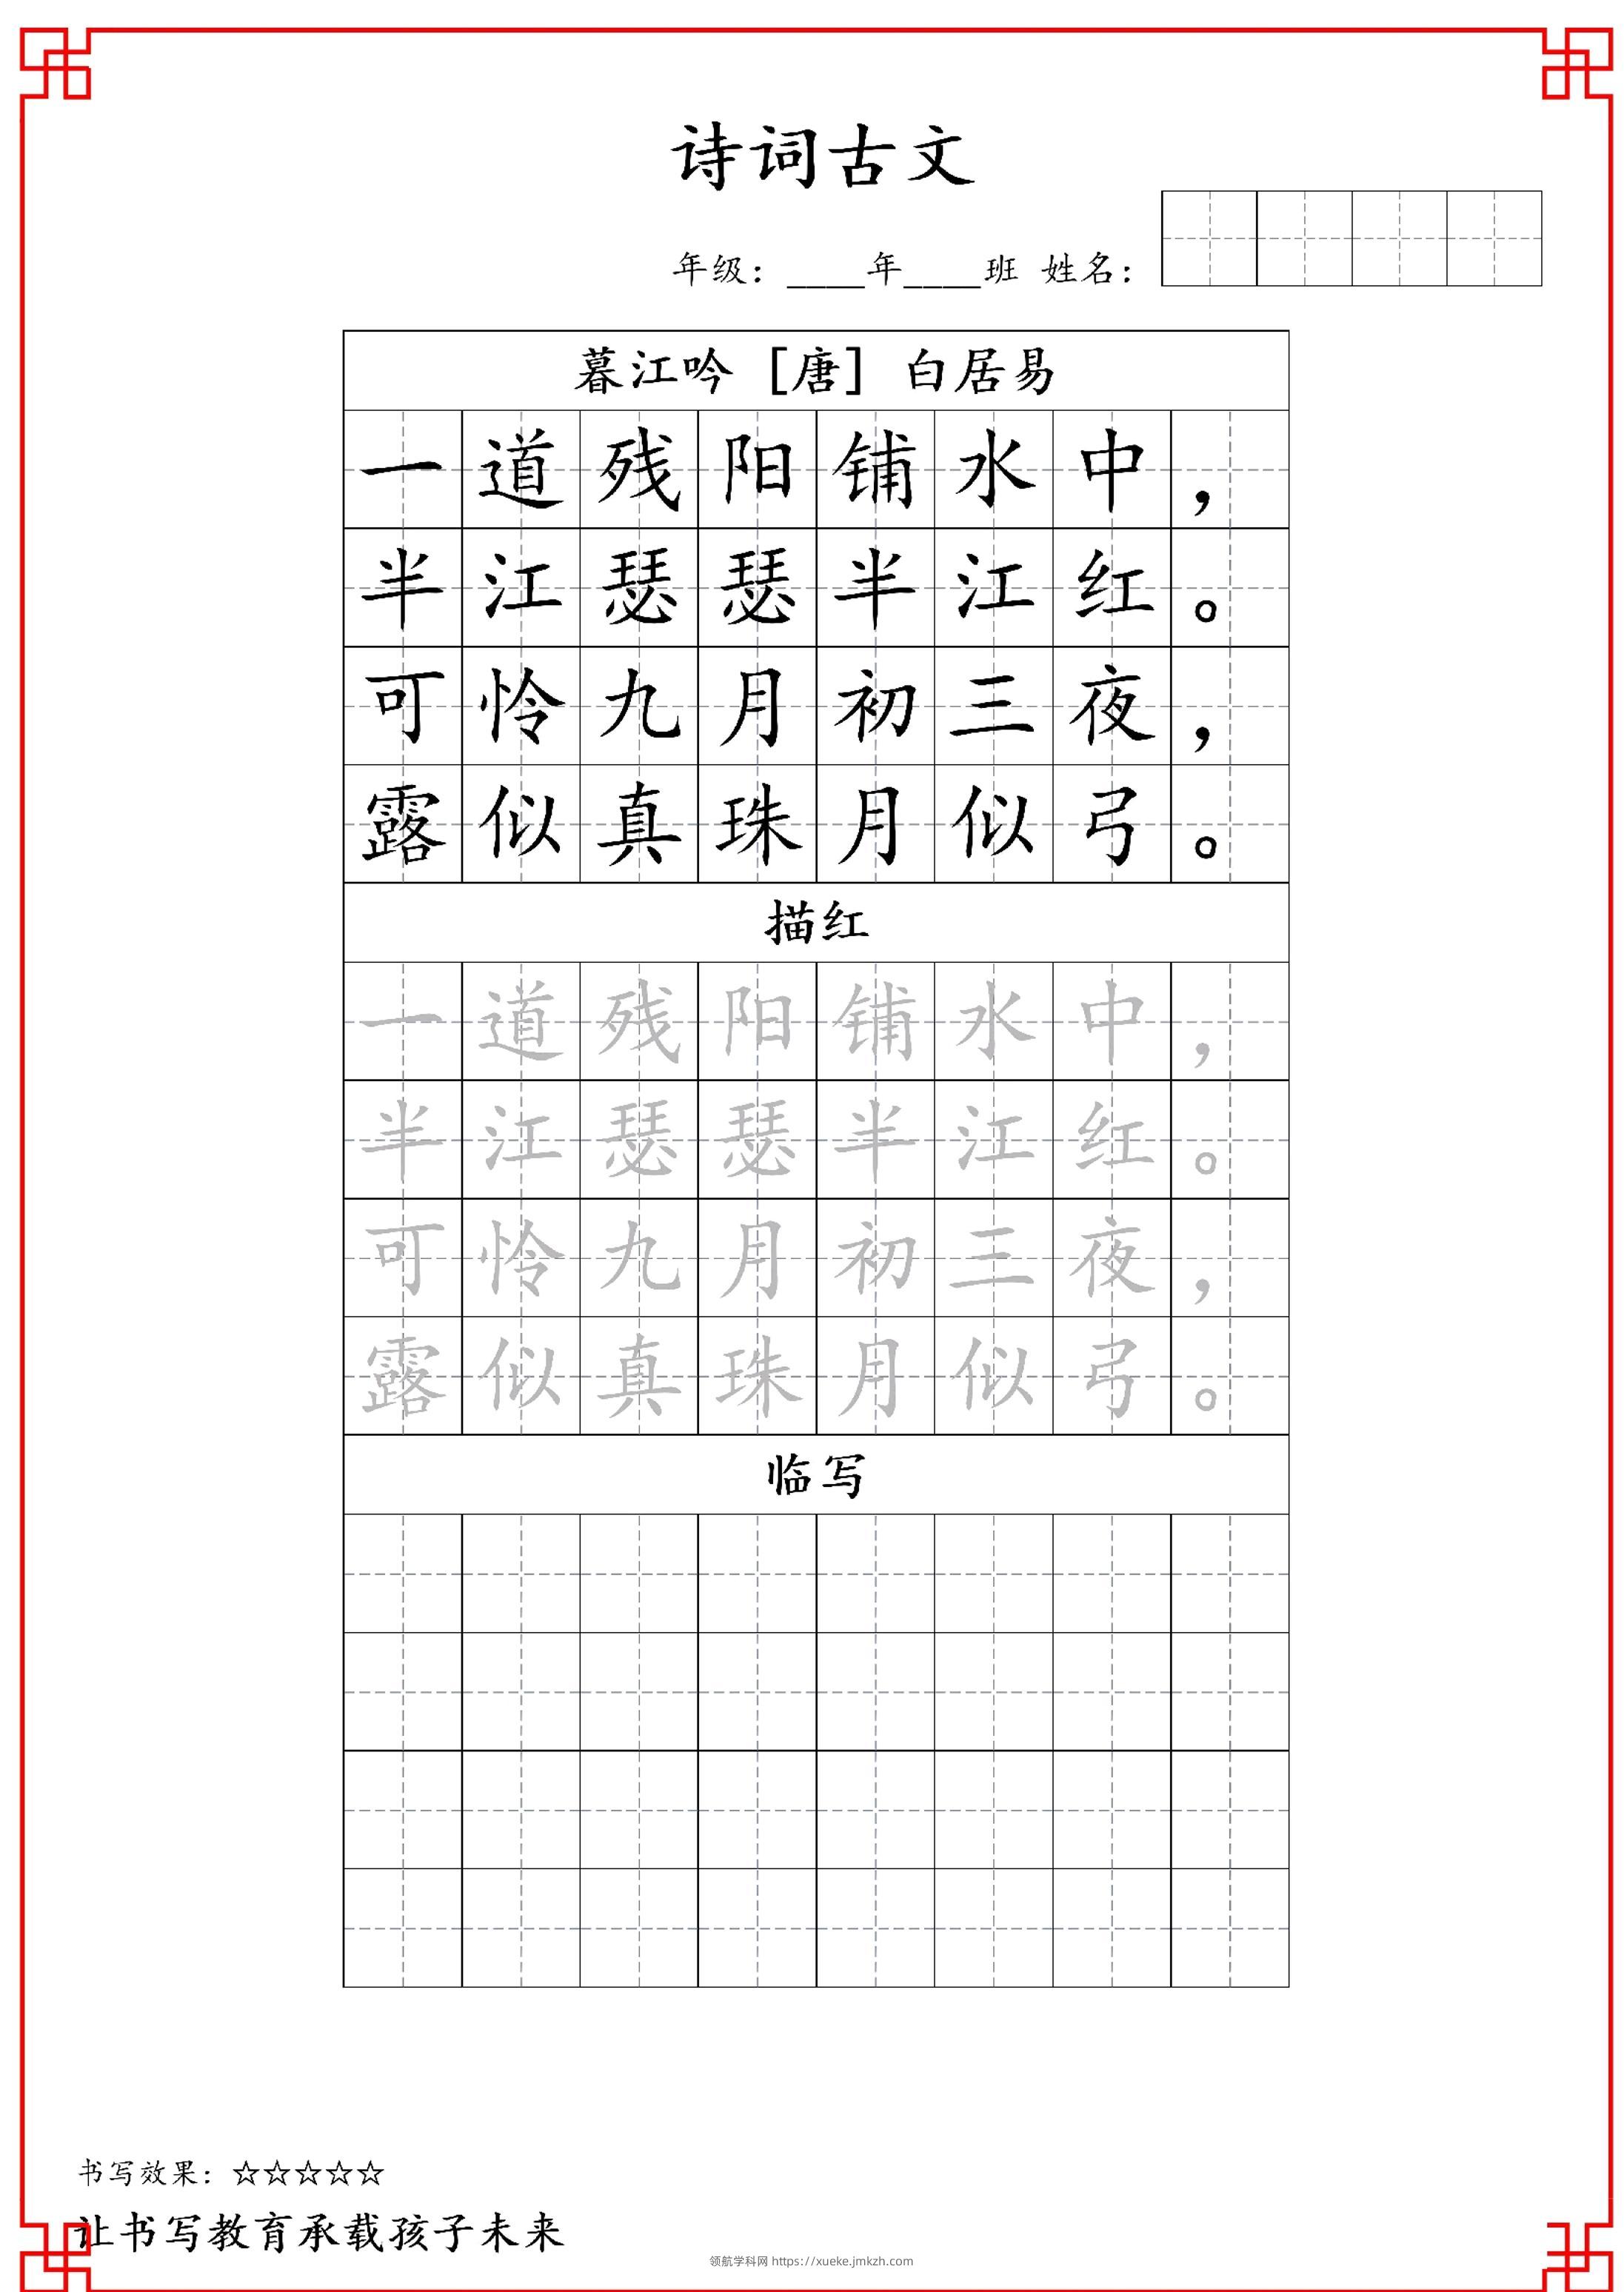 诗词古文
年级：____年____班 姓名：
暮江吟［唐］白居易
一道残阳铺水中，
半江瑟瑟半江红。
可怜九月初三夜，
露似真珠月似弓。
描红
一道残阳铺水中，
半江瑟瑟半江红。
可怜九月初三夜，
露似真珠月似弓。
临写
书写效果：☆☆☆☆☆
让书写教育承载孩子未来
领航学科网 https://xueke.jmkzh.com